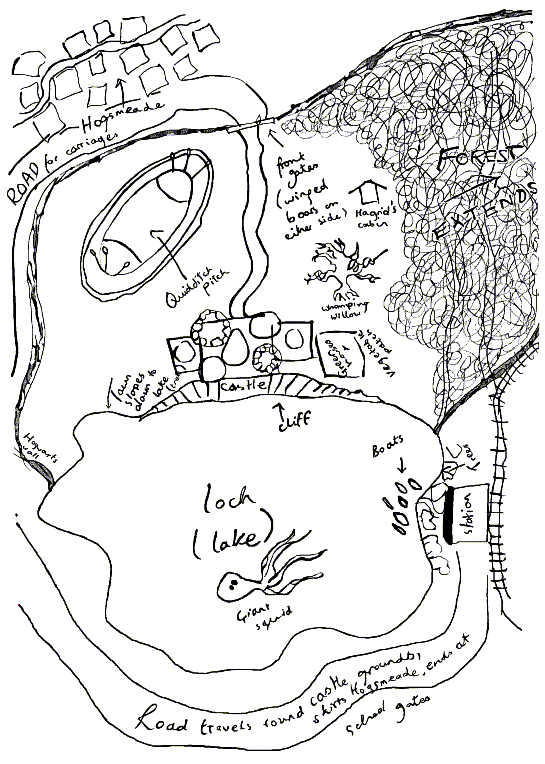 Hogsmeade
ROAD for carriages
front
gates
(winged
boars on
either side)
Hagrid's
cabin
FOREST
EXTENDS
Quidditch
pitch
whomping
willow
vegetable
patch
castle
lawn
slopes
down to
lake
cliff
Hogwarts
wall
Boats
trees
station
loch
(lake)
Giant
squid
Road travels round castle grounds,
skirts Hogsmeade, ends at
school gates